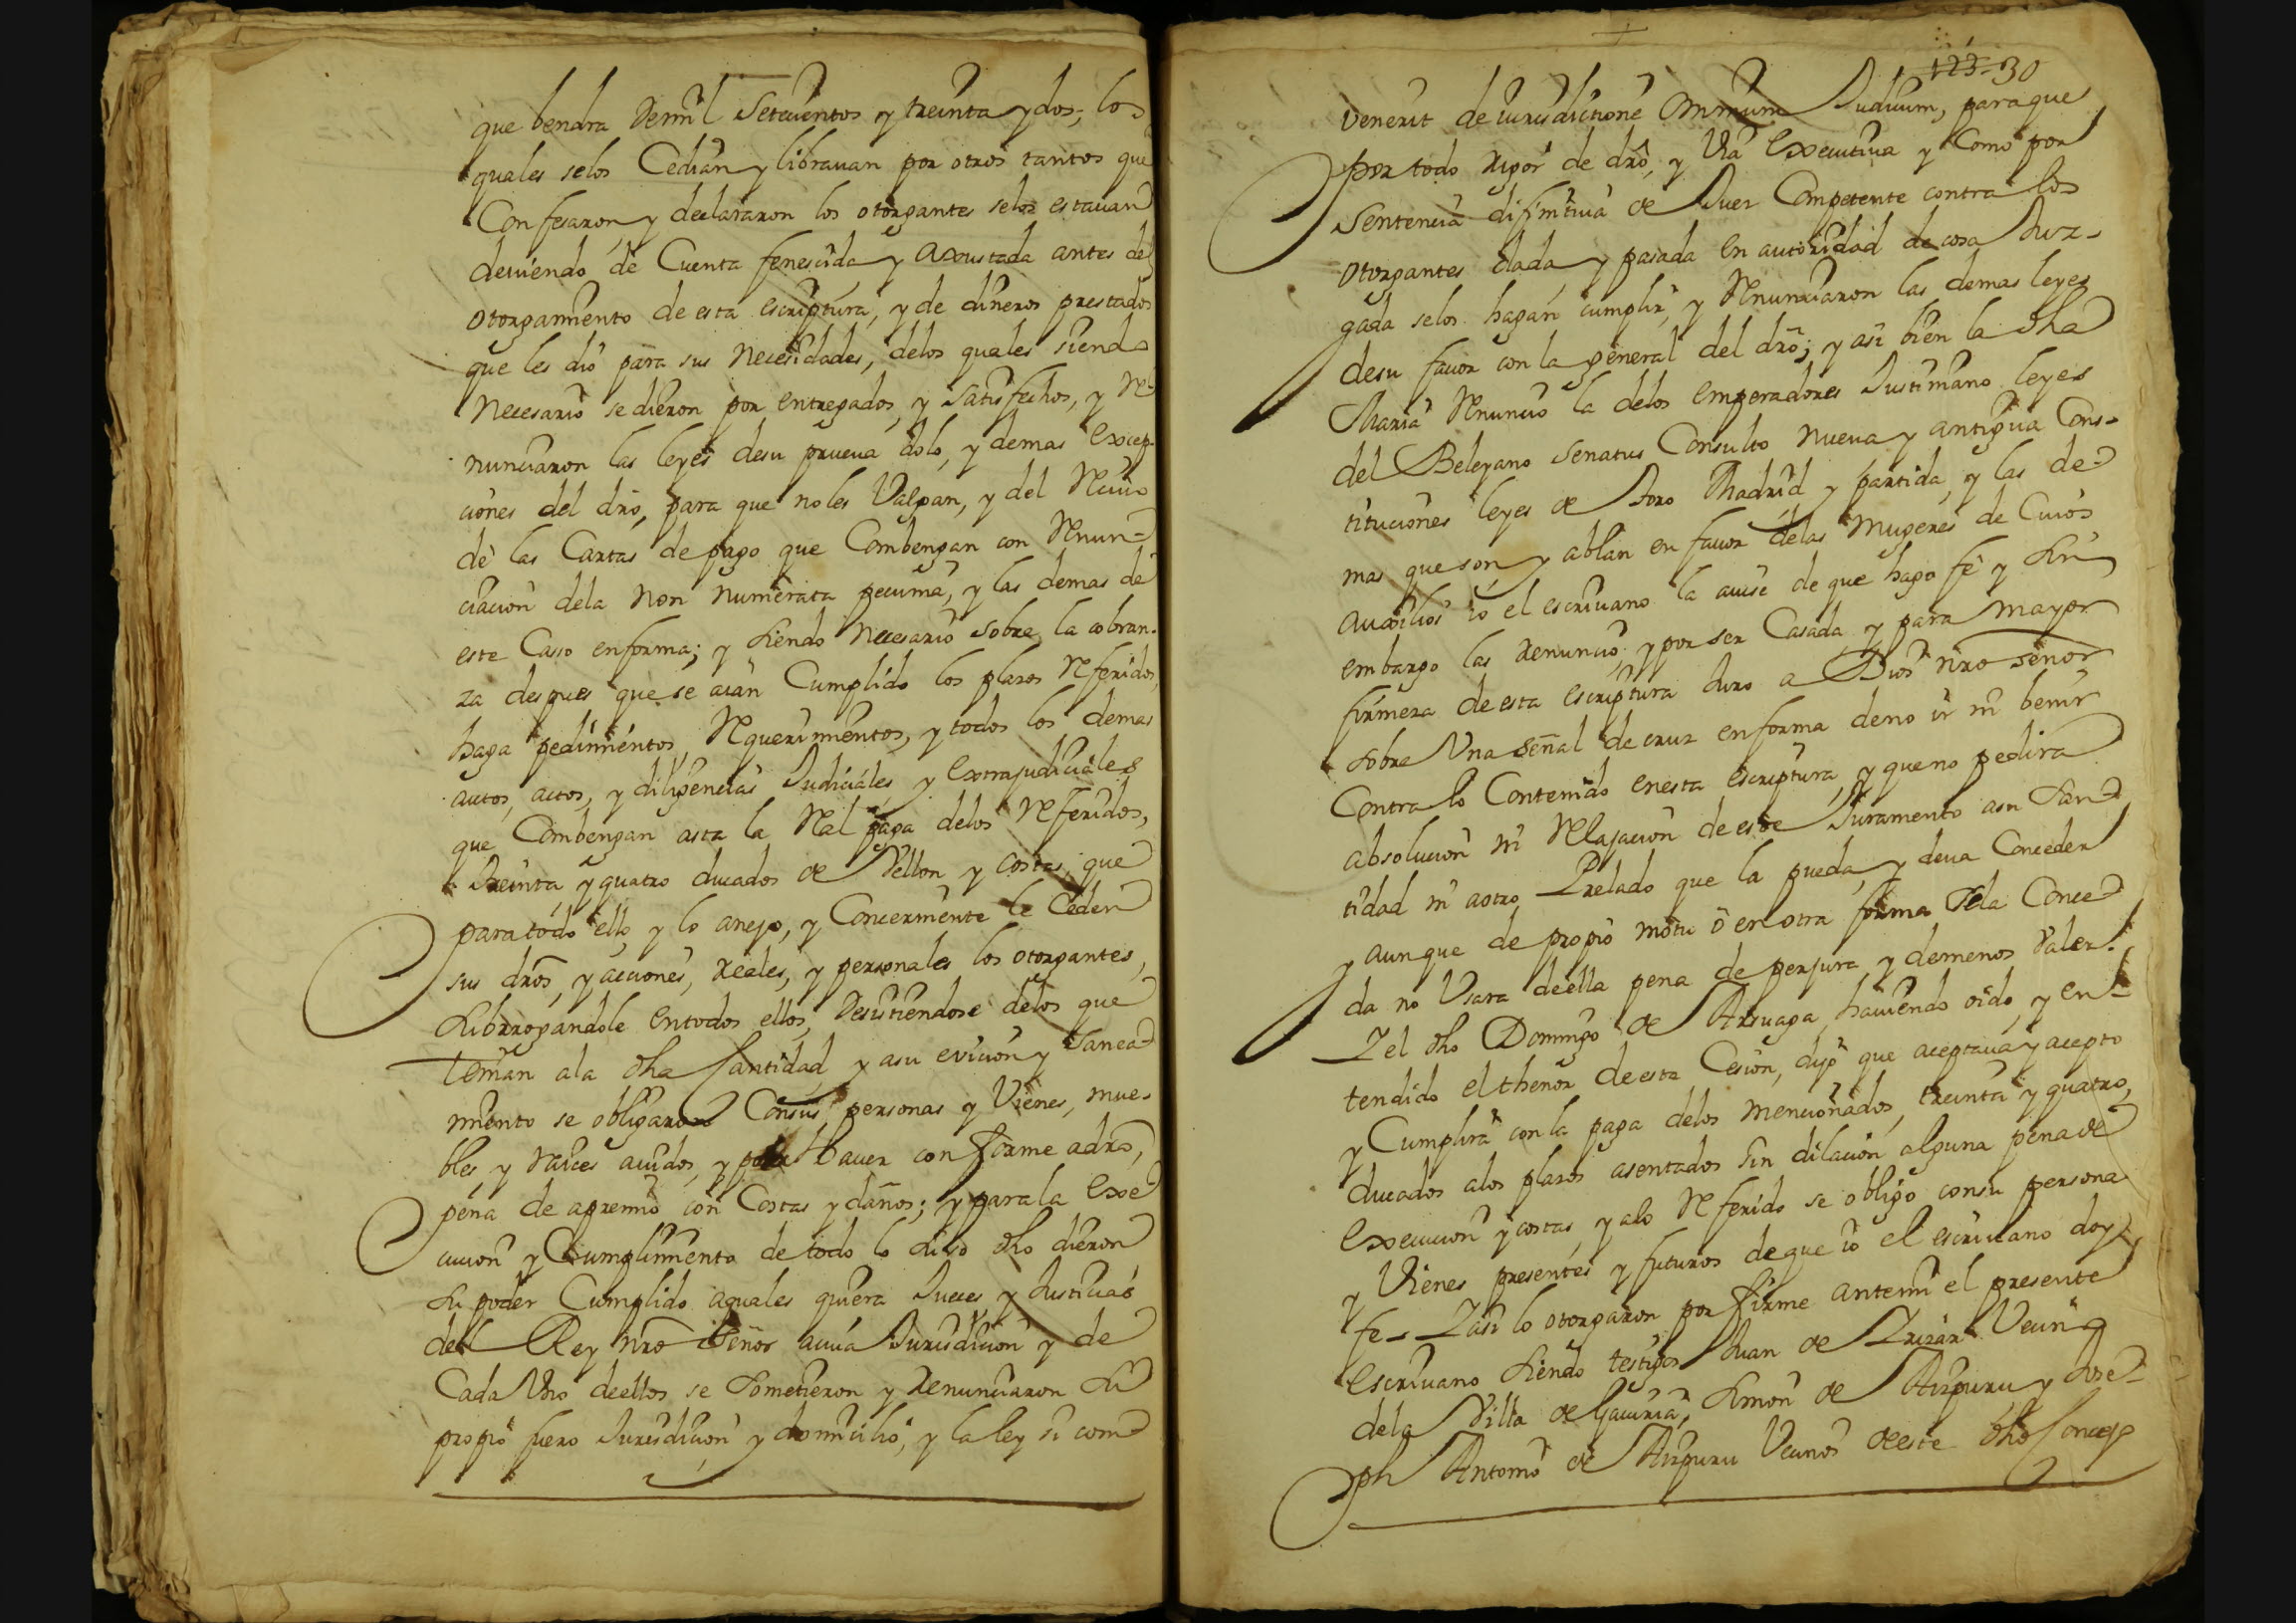 que bendra demil setecientos y treinta y dos, los
quales selos Cedian y libravan por otros tantos que
Confesaron y declararon los otorgantes selos estavan
deviendo de Cuenta fenescida y axustada antes del
otorgamiento de esta escriptura, y de dineros prestados
que les dio para sus necesidades, delos quales siendo
Necesario se dieron por entregados, y satisfechos, y Re
nunciaron las leyes desu prueva dolo, y demas excep-
ciones del dro, para que noles Valgan, y del Recivo
de las Cartas de pago que Combengan con Renun-
ciacion dela non numerata pecunia, y las demas de
este Caso enforma; y siendo necesario sobre la cobran-
za despues que se aian Cumplido los plazos Referidos,
haga pedimientos, Requerimientos, y todos los demas
autos, actos, y diligencias Judiciales y extrajudiciales
que Combengan asta la Real paga delos Referidos,
treinta y quatro ducados de Vellon y costas, que
para todo ello, y lo anejo, y Concerniente le Ceden
sus dros, y acciones, reales, y personales los otorgantes,
subrrogandole entodos ellos, desistiendose delos que
tenian ala dha Cantidad, y asu evicion y sanea-
miento se obligaron Consus personas y Vienes, mue-
bles, y raices avidos, y por haver conforme adro,
pena de apremio con Costas y daños; y para la exe
cucion y Cumplimiento de todo lo suso dho dieron
su poder Cumplido aquales quiera Jueces y Justicias
del Rey nro Señor acuia Jurisdicion y de
Cada Uno deellos se sometieron y Renunciaron su
propio fuero Jurisdicion y domicilio, y la ley si com
123 30
venerit de iurisdictione omnium Judicum, paraque
por todo rigor de dro, y Via executiva y Como por
Sentencia difinitiva de Juez Competente contra los
otorgantes dada, y pasada en autoridad de cosa Juz-
gada selos hagan cumplir, y Renunciaron las demas leyes
desu favor con la general del dro; y asi bien la dha
Maria Renuncio la delos emperadores Justiniano leyes
del Beleyano senatus Consulto nueva y antigua Cons-
tituciones leyes de toro Madrid y partida, y las de-
mas que son y ablan en favor delas Mugeres de Cuios
auxilios io el escrivano la avise de que hago fe y sin
embargo las renuncio, y por ser Casada y para mayor
firmeza de esta escriptura Juro a Dios nro señor
sobre Una señal de cruz enforma deno ir ni benir
Contra lo Contenido enesta escriptura, y que no pedira
absolucion ni Relajacion de este Juramento asu San-
tidad ni aotro Prelado que la pueda, y deva Conceder
y aunque de propio motu o en otra forma sela Conce-
da no Usara deella pena de perjura, y demenos valer.
Y el dho Domingo de Arsuaga, haviendo oido, y en-
tendido el thenor deesta Cesion, dijo que aceptava y acepto
y Cumplira con la paga delos mencionados, treinta y quatro,
ducados alos plazos asentados sin dilacion alguna pena de
execucion y costas, y alo Referido se obligo consu persona
y Vienes presentes y futuros deque io el escrivano doy
fe - Y asi lo otorgaron por firme antemi el presente
escrivano siendo testigos Juan de Yrizar Vecino
dela Villa de Gaviria, Simon de Aizpuru y Jose-
ph Antonio de Aizpuru Vecinos deeste dho Concejo